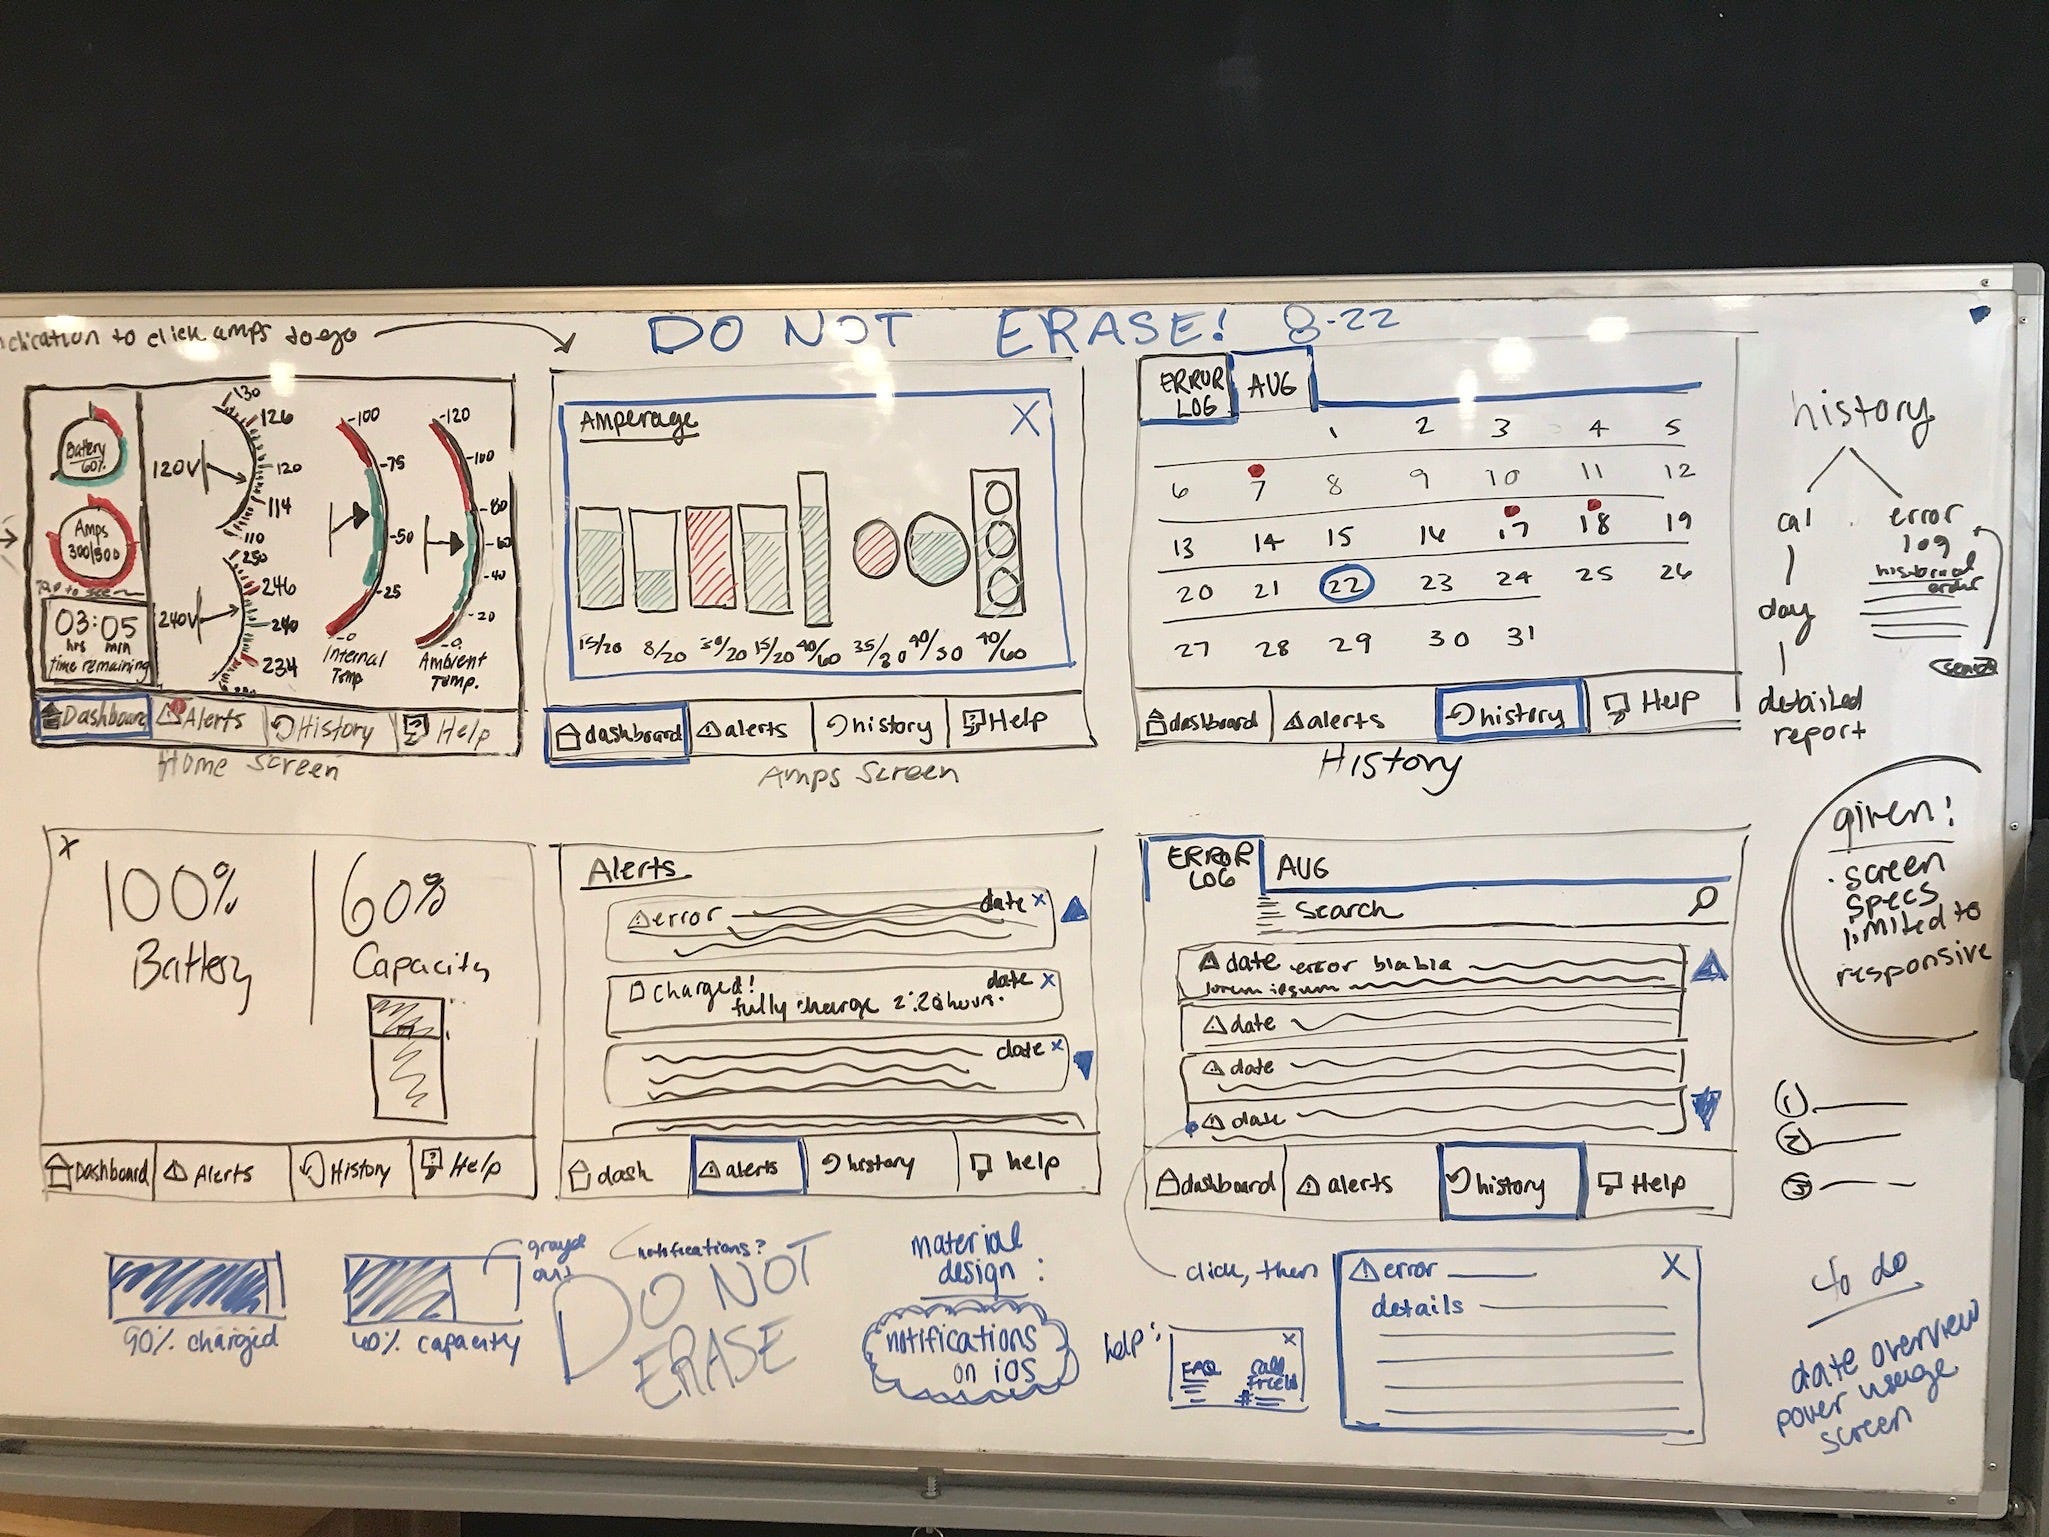 to click amps to go
DO NOT ERASE! 8-22
Battery
60%
Amps
300/300
03:05
hrs min
time remaining
120V
130
126
120
114
110
240V
250
246
240
234
-100
-75
-50
-25
-0
Internal
Temp
-120
-100
-80
-60
-40
-20
-0
Ambient
Temp.
Dashboard
Alerts
History
Help
Home Screen
Amperage X
15/20 8/20 15/20 40/60 40/60
dashboard alerts history Help
Amps Screen
ERROR
LOG
AUG
1 2 3 4 5
6 7 8 9 10 11 12
13 14 15 16 17 18 19
20 21 22 23 24 25 26
27 28 29 30 31
dashboard alerts history Help
History
history
cal
day
detailed
report
error
log
historical
order
search
given:
· screen
specs
limited to
responsive
1
2
3
X
100%
Battery
60%
Capacity
Dashboard Alerts History Help
Alerts
error date x
charged! date x
fully charge 2:20 hours.
date x
dash alerts history help
ERROR
LOG
AUG
Search
date error blabla
lorem ipsum
date
date
date
dashboard alerts history Help
90% charged
grayed
out
capacity
notifications?
DO NOT
ERASE
material
design :
notifications
on iOS
click, then
help:
X
FAQ
call
#
error X
details
to do
date overview
power usage
screen